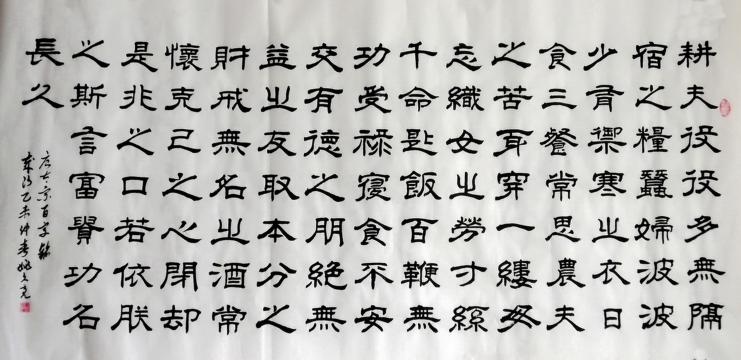 耕夫役役多無隔
宿之糧蠶婦波波
少有禦寒之衣日
食三飱常思農夫
之苦身穿一縷毋
忘織女之勞寸絲
千命匙飯百鞭無
功受祿寢食不安
交有德之朋絕無
益之友取本分之
財戒無名之酒常
懷克己之心閉却
是非之口若依朕
之斯言富貴功名
長久
唐太宗百字銘
歲次乙未仲春